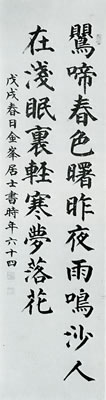 鸎啼春色曙昨夜雨鳴沙人
在淺眠裏輕寒夢落花
戊戌春日金峯居士書時年六十四